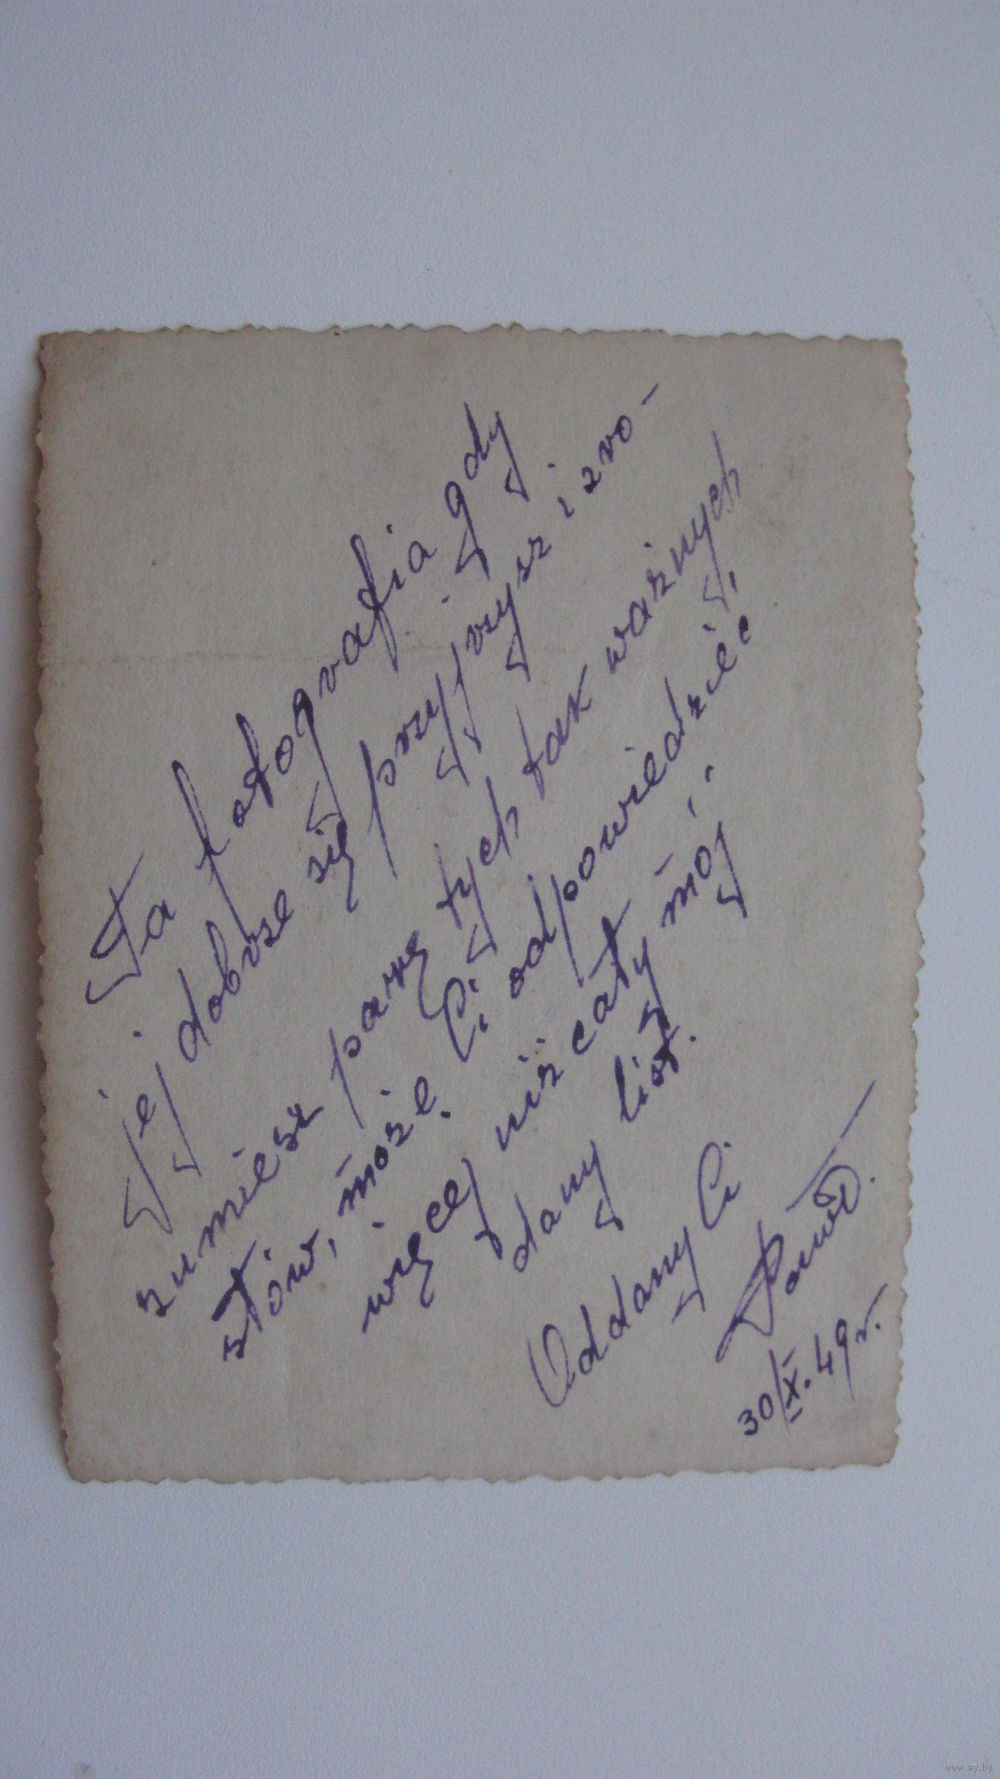 Ta fotografia gdy
jej dobrze się przyjrzysz i zro-
zumiesz parę tych tak ważnych
słów, może Ci odpowiedzieć
więcej niż cały mój
dany list.
Oddany Ci
30/X.49r.
www.ay.by